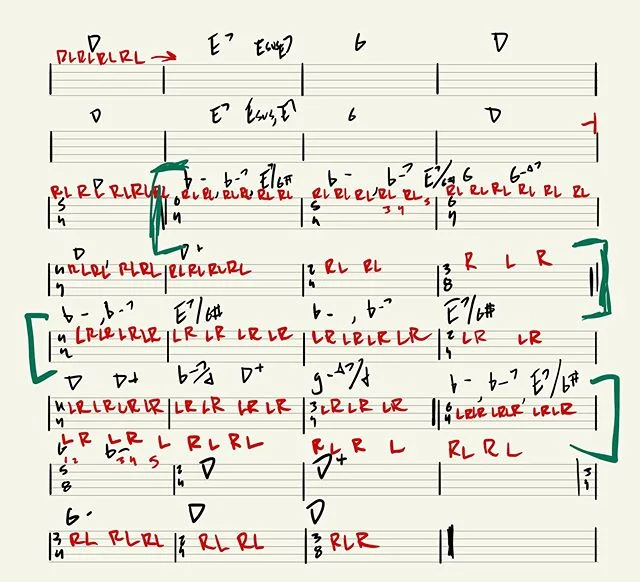 D E7 Esus E7 G D
RLRLRLRL →
D E7 Esus, E7 G D
D b- , b-7 E7/G# b- , b-7 E7/G# G G-Δ7
RL RL RLRLRL RL RL, RL RL RL RL RL, RL RL RL RL RL RL RL RL
5/4 6/4 5/4 3 4 5 6/4
D D+
4/4 RLRL' RLRL RLRLRLRL 2/4 RL RL 3/8 R L R
b- , b-7 E7/G# b- , b-7 E7/G#
4/4 LRLRLRLR LR LR LR LR LR LR LR LR 2/4 LR LR
D D+ b-7/d D+ g-Δ7/d b- b-7 E7/G#
4/4 LRLRLRLR LR LR LR LR 3/4 LR LR LR 6/4 LRLR' LRLR' LRLR
LR LR L RL RL RL R L RL R L
G 1 2 b- 3 4 5
5/8 2/4 D D+ 3/4
G- D D
3/4 RL RL RL 2/4 RL RL 3/8 RLR